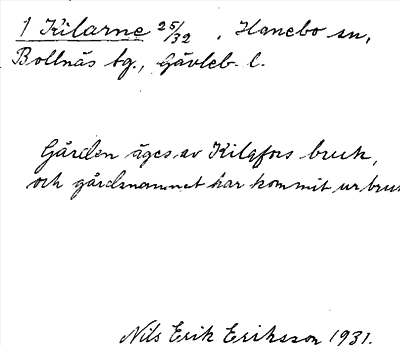 1 Kilarne 25/32, Hanebo sn,
Bollnäs tg., Gävleb. l.
Gården äges av Kilafors bruk,
och gårdsnamnet har kommit ur bruk
Nils Erik Eriksson 1931.